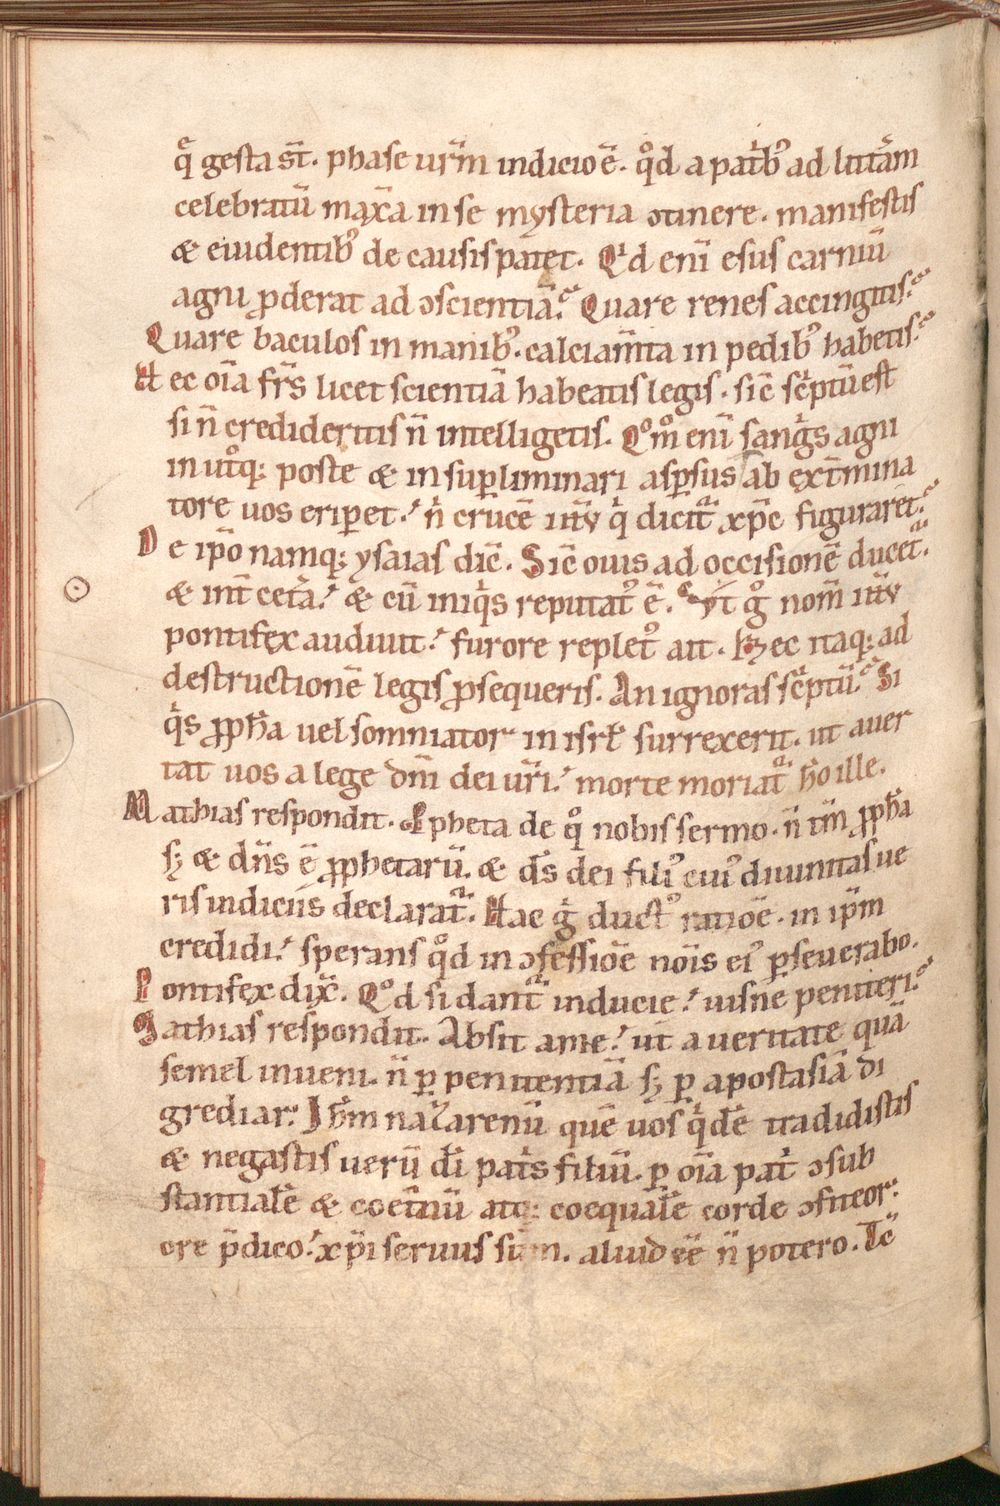 q̄ gesta st̄. phase ur̄m indicio ē. qͦd a patⁱbꝰ ad litt̄am
celebratū max̄a in se mysteria ↄtinere. manifestis
& euidentibꝰ de causis patet. Qⁱd enī esus carniū
agni ꝓderat ad ↄscientiā? Quare renes accingitis?
Quare baculos in manibꝰ. calciam̄ta in pedibꝰ habetis?
Hec oīa fr̄s licet scientiā habeatis legis. sic̄ scⁱptū est
si n̄ credideritis n̄ intelligetis. Qͦm̄ enī sangⁱs agni
in utͦq; poste & in suꝑliminari asꝑsus ab ext̄mina
tore uos eriꝑet. n̄ crucē ill̄ı qⁱ dicitᷣ xp̄c figuraret?
De ip̄o namq; ysaias dic̄. Sic̄ ouis ad occisionē ducetᷣ.
& int̄ cetᵃ. & cū iniqⁱs reputatꝰ ē. Vt gͦ nom̄ ihū
pontifex audiuit. furore repletꝰ ait. Hec itaq; ad
destructionē legis ꝓsequeris. An ignoras scⁱptū? Si
qⁱs ꝓph̄a uel somniator in isrl̄ surrexerit. ut auer
tat uos a lege dn̄i dei ur̄i. morte moriatᷣ h̄o ille.
Mathias respondit. Ꝓpheta de qͦ nobis sermo. n̄ tm̄ ꝓph̄a
sꝫ & dn̄s ē ꝓphetarū. & ds̄ dei filiꝰ cuiꝰ diuinitas ue
ris indiciis declaratᷣ. Hac gͦ ductꝰ ratiōe. in ip̄m
credidi. sperans qͦd in ↄfessiōe nōis eiꝰ ꝑseuerabo.
Pontifex dix̄. Qͦd si dantᷣ inducie. uisne peniteri?
Mathias respondit. Absit a me. ut a ueritate quā
semel inueni. n̄ ꝑ penitentiā sꝫ ꝑ apostasiā di
grediar. Ih̄m nazarenū quē uos qⁱdē tradidistis
& negastis uerū dī patⁱs filiū. ꝑ oīa patⁱ ↄsub
stantialē & coet̄nū atq; coequalē corde ↄfiteor.
ore p̄dico. xp̄i seruus sum. aliud ēe n̄ potero. Tc̄